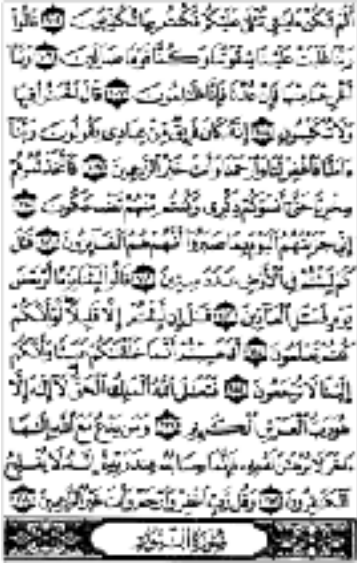 أَلَمْ تَكُنْ ءَايَٰتِي تُتْلَىٰ عَلَيْكُمْ فَكُنتُم بِهَا تُكَذِّبُونَ قَالُوا۟
رَبَّنَا غَلَبَتْ عَلَيْنَا شِقْوَتُنَا وَكُنَّا قَوْمًا ضَآلِّينَ رَبَّنَآ
أَخْرِجْنَا مِنْهَا فَإِنْ عُدْنَا فَإِنَّا ظَٰلِمُونَ قَالَ ٱخْسَـُٔوا۟ فِيهَا
وَلَا تُكَلِّمُونِ إِنَّهُۥ كَانَ فَرِيقٌ مِّنْ عِبَادِي يَقُولُونَ رَبَّنَآ
ءَامَنَّا فَٱغْفِرْ لَنَا وَٱرْحَمْنَا وَأَنتَ خَيْرُ ٱلرَّٰحِمِينَ فَٱتَّخَذْتُمُوهُمْ
سِخْرِيًّا حَتَّىٰٓ أَنسَوْكُمْ ذِكْرِي وَكُنتُم مِّنْهُمْ تَضْحَكُونَ
إِنِّي جَزَيْتُهُمُ ٱلْيَوْمَ بِمَا صَبَرُوٓا۟ أَنَّهُمْ هُمُ ٱلْفَآئِزُونَ قَٰلَ
كَمْ لَبِثْتُمْ فِي ٱلْأَرْضِ عَدَدَ سِنِينَ قَالُوا۟ لَبِثْنَا يَوْمًا أَوْ بَعْضَ
يَوْمٍ فَسْـَٔلِ ٱلْعَآدِّينَ قَٰلَ إِن لَّبِثْتُمْ إِلَّا قَلِيلًا لَّوْ أَنَّكُمْ
كُنتُمْ تَعْلَمُونَ أَفَحَسِبْتُمْ أَنَّمَا خَلَقْنَٰكُمْ عَبَثًا وَأَنَّكُمْ
إِلَيْنَا لَا تُرْجَعُونَ فَتَعَٰلَى ٱللَّهُ ٱلْمَلِكُ ٱلْحَقُّ لَآ إِلَٰهَ إِلَّا
هُوَ رَبُّ ٱلْعَرْشِ ٱلْكَرِيمِ وَمَن يَدْعُ مَعَ ٱللَّهِ إِلَٰهًا
ءَاخَرَ لَا بُرْهَٰنَ لَهُۥ بِهِۦ فَإِنَّمَا حِسَابُهُۥ عِندَ رَبِّهِۦٓ إِنَّهُۥ لَا يُفْلِحُ
ٱلْكَٰفِرُونَ وَقُل رَّبِّ ٱغْفِرْ وَٱرْحَمْ وَأَنتَ خَيْرُ ٱلرَّٰحِمِينَ
سُورَةُ